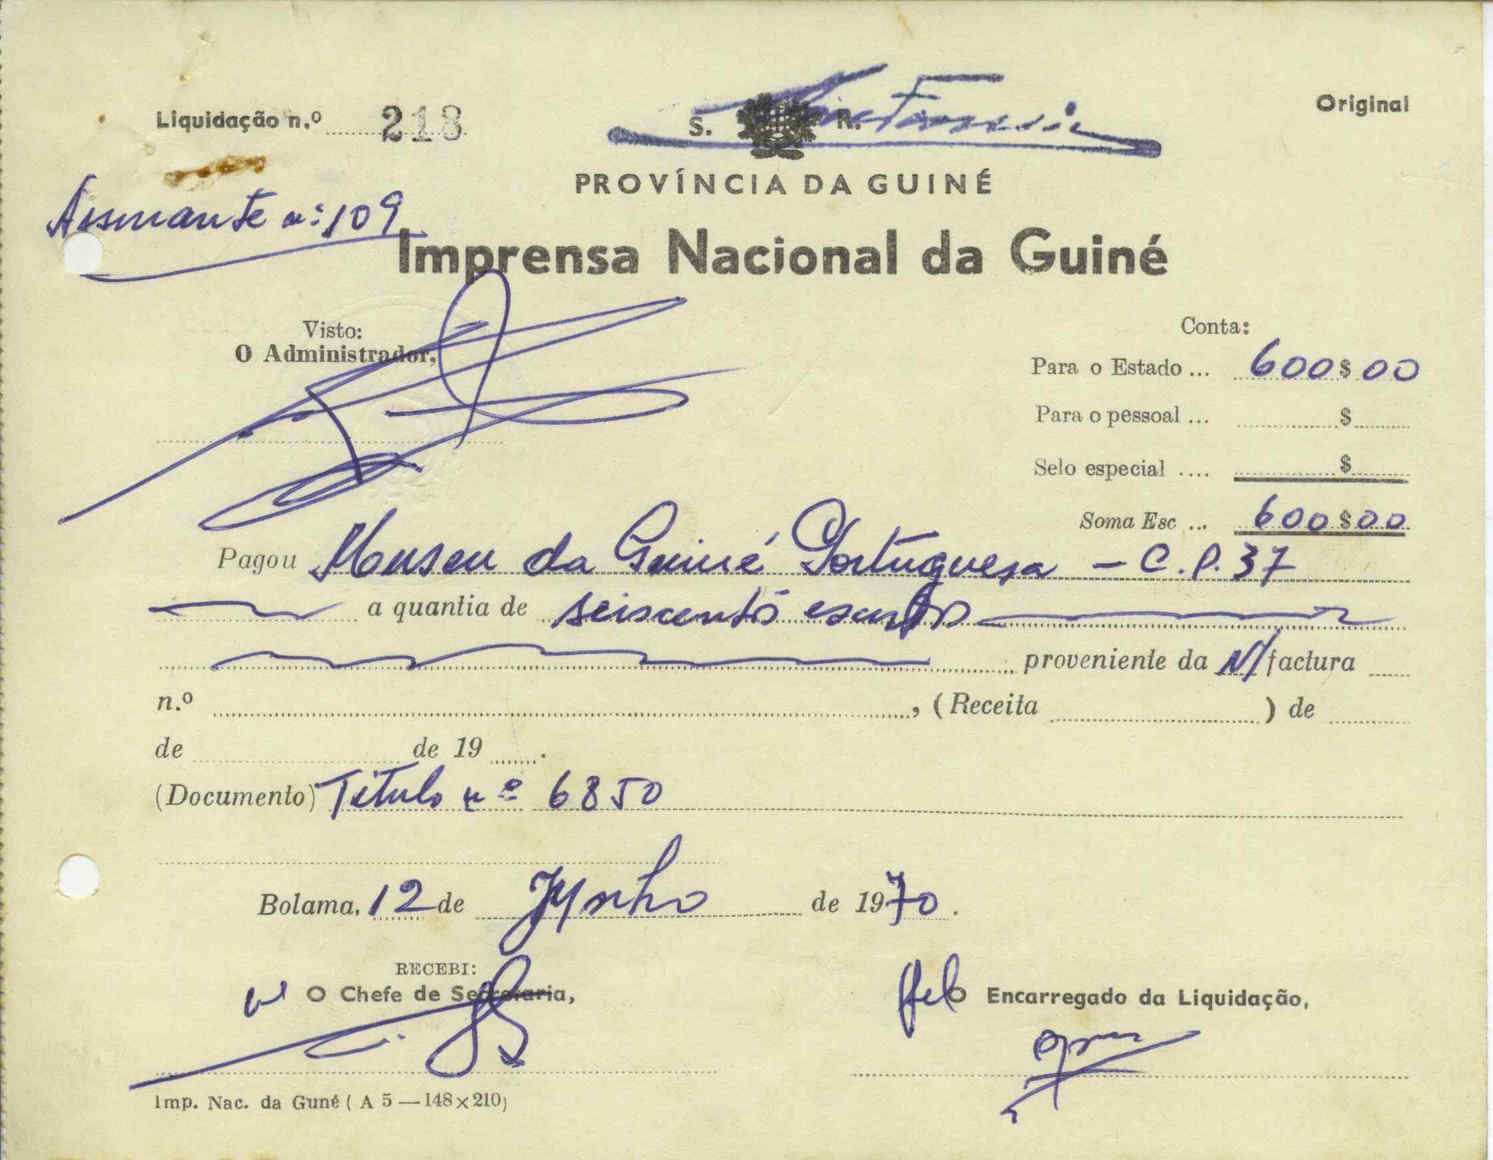 Liquidação n.º 218
S. R.
Original
PROVÍNCIA DA GUINÉ
Assinante nº: 109
Imprensa Nacional da Guiné
Visto:
O Administrador,
Conta:
Para o Estado ... 600$00
Para o pessoal ... $
Selo especial .... $
Soma Esc ... 600$00
Pagou Museu da Guiné Portuguesa - C.P. 37
a quantia de seiscentos escudos
proveniente da N/factura
n.º , (Receita ) de
de de 19 .
(Documento) Título nº 6850
Bolama, 12 de Junho de 1970.
RECEBI:
O Chefe de Secretaria,
Pelo Encarregado da Liquidação,
Imp. Nac. da Guné ( A 5 — 148 × 210)